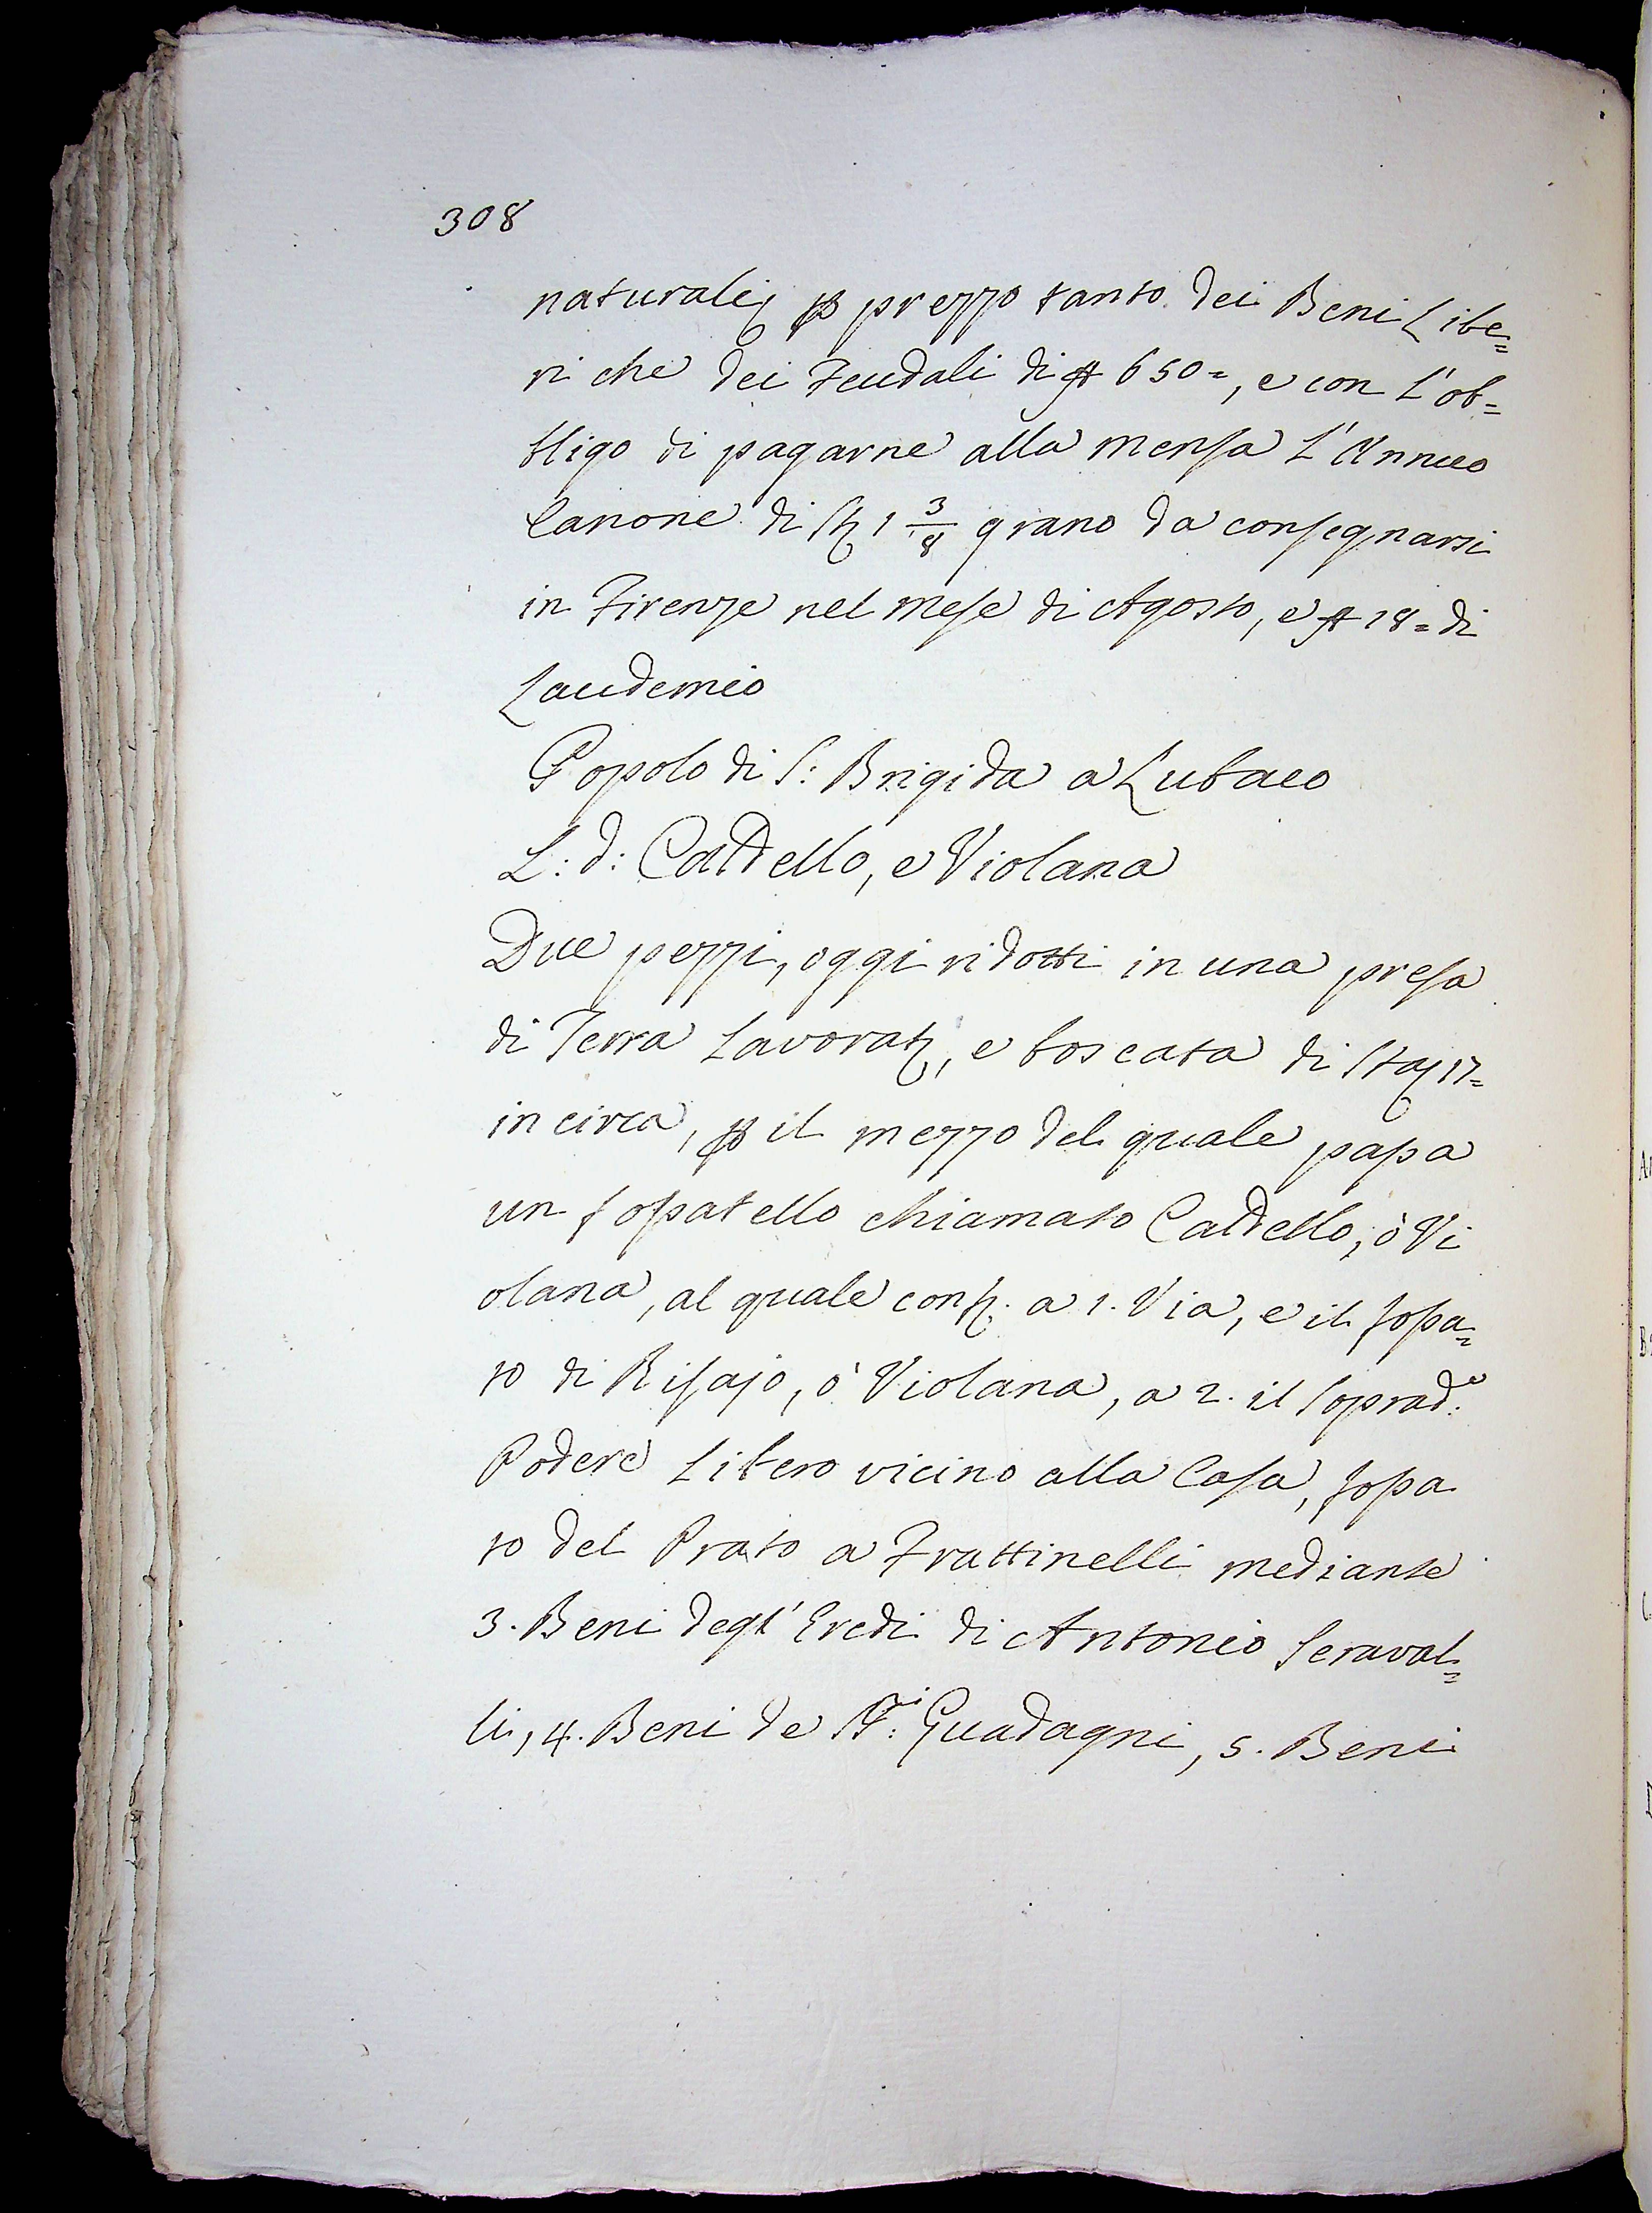 308
naturali, p prezzo tanto dei Beni Libe=
ri che dei Feudali di 650=, e con L'ob=
bligo di pagarne alla Mensa L'Annuo
Canone di st 1 3/8 grano da consegnarsi
in Firenze nel Mese di Agosto, e 18= di
Laudemio
Popolo di S: Brigida a Lubaco
L: d: Caldello, e Violana
Due pezzi, oggi ridotti in una presa
di Terra Lavorat, e boscata di Sta 17=
in circa, p il mezzo del quale passa
un fossatello chiamato Caldello, ò Vi
olana, al quale conf. a 1. Via, e il fossa=
to di Risajo, ò Violana, a 2. il soprad:o
Podere Libero vicino alla Casa, fossa
to del Prato a Frattinelli mediante
3. Beni degl' Eredi di Antonio Seraval=
li, 4. Beni de SS:i Guadagni, 5. Beni